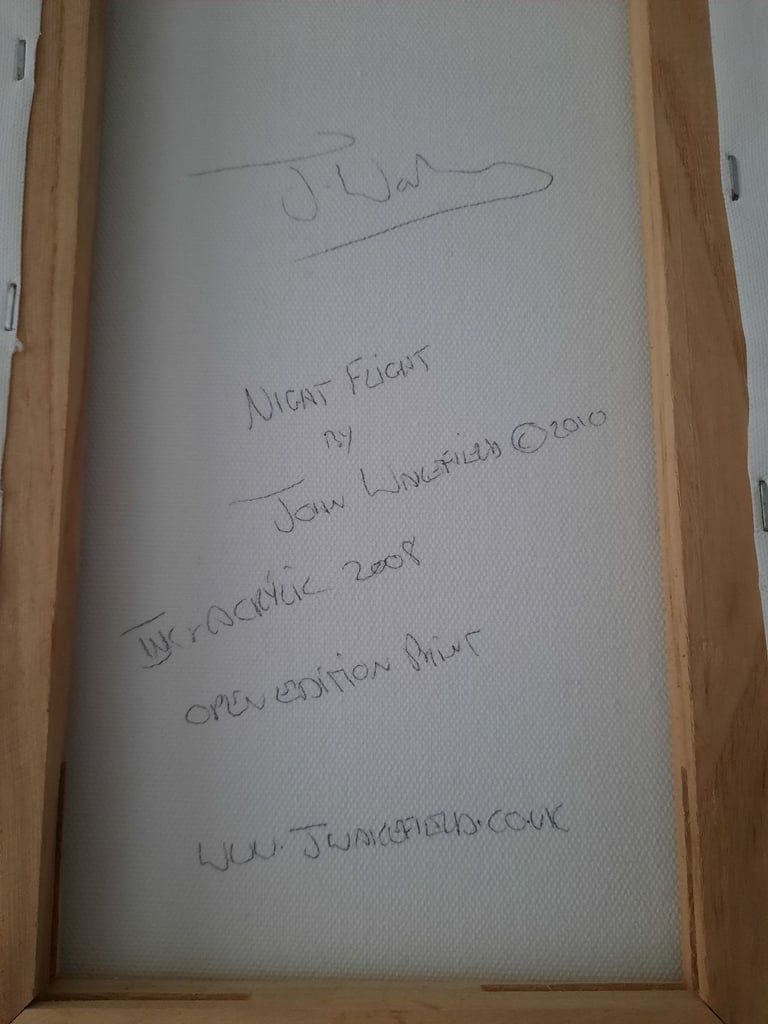 J. Wake
NIGHT FLIGHT
BY
JOHN WAKEFIELD © 2010
INK & ACRYLIC 2008
OPEN EDITION PRINT
WWW.JWAKEFIELD.CO.UK